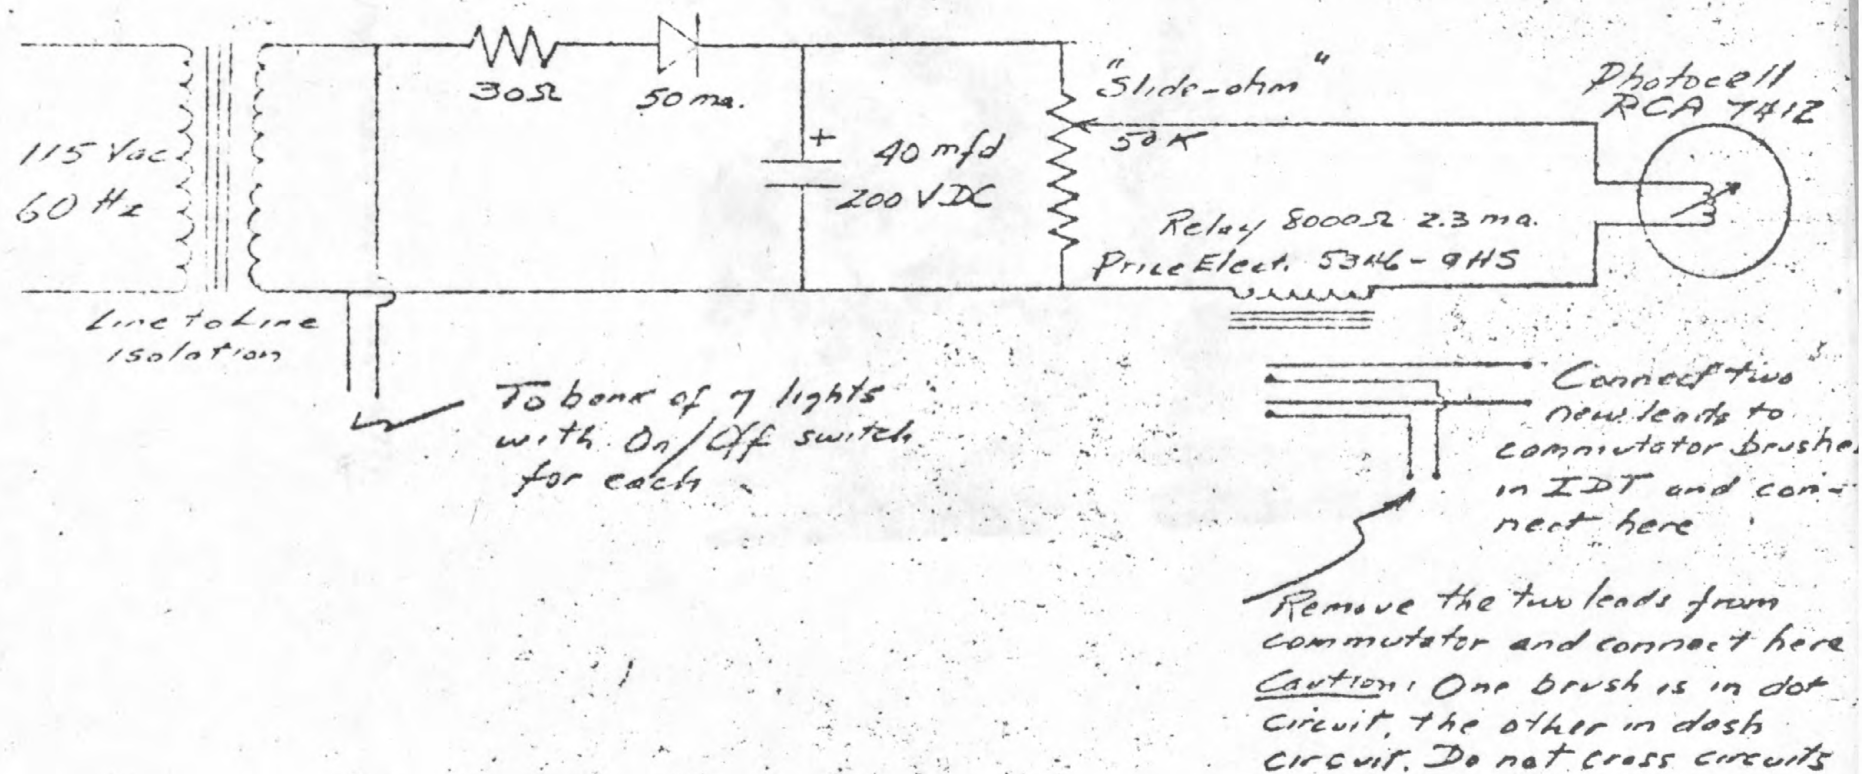 115 Vac
60 Hz
Line to Line
isolation
30Ω
50 ma.
+
40 mfd
200 VDC
"Slide-ohm"
50K
Photocell
RCA 7412
Relay 8000Ω 2.3 ma.
Price Elect.
To bank of 7 lights
with On/Off switch
for each
Connect two
new leads to
commutator brushes
in IDT and con-
nect here
Remove the two leads from
commutator and connect here
Caution: One brush is in dot
circuit, the other in dash
circuit. Do not cross circuits